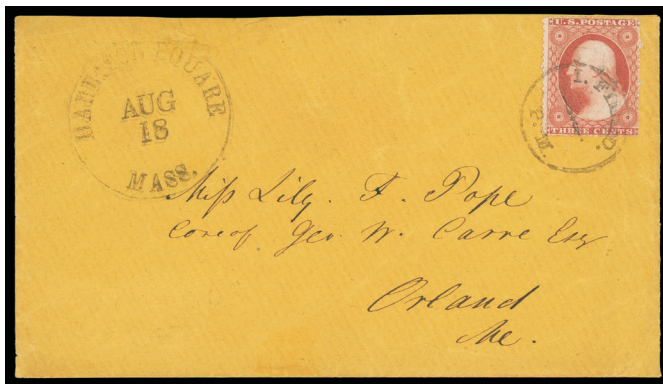 HARRISON SQUARE
AUG
18
MASS.
U.S. POSTAGE
THREE CENTS
P. M.
Miss Lily. F. Pope
Care of Geo. W. Carre Esq
Orland
Me.